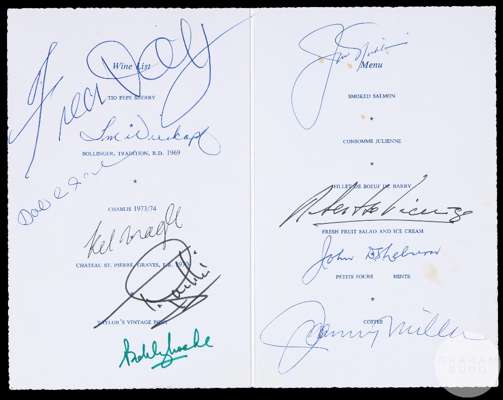 Wine List
TIO PEPE SHERRY
Fred Daly
BOLLINGER, TRADITION, R.D. 1969
*
CHABLIS 1973/74
Kel Nagle
CHATEAU ST. PIERRE, GRAVES,
*
TAYLOR'S VINTAGE PORT
Bobby Locke
Menu
SMOKED SALMON
*
CONSOMME JULIENNE
*
FILLET DE BOEUF DU BARRY
Roberto De Vicenzo
FRESH FRUIT SALAD AND ICE CREAM
PETITS FOURS MINTS
*
COFFEE
Johnny Miller
GRAHAM
BUDD